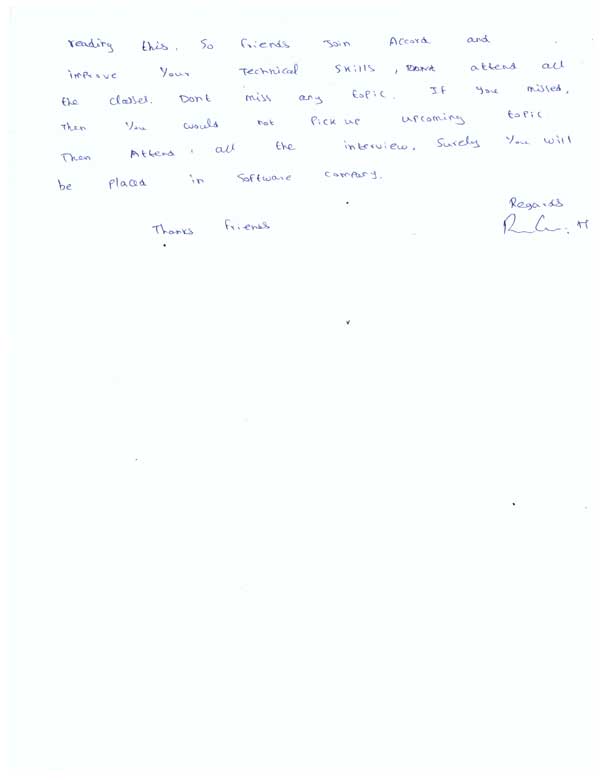 reading this. So friends Join Accord and
improve Your Technical Skills, attend all
the classes. Dont miss any topic. If You missed,
Then You would not Pick up upcoming topic
Then Attend all the interview. Surely You will
be placed in Software company.
Regards
Thanks Friends